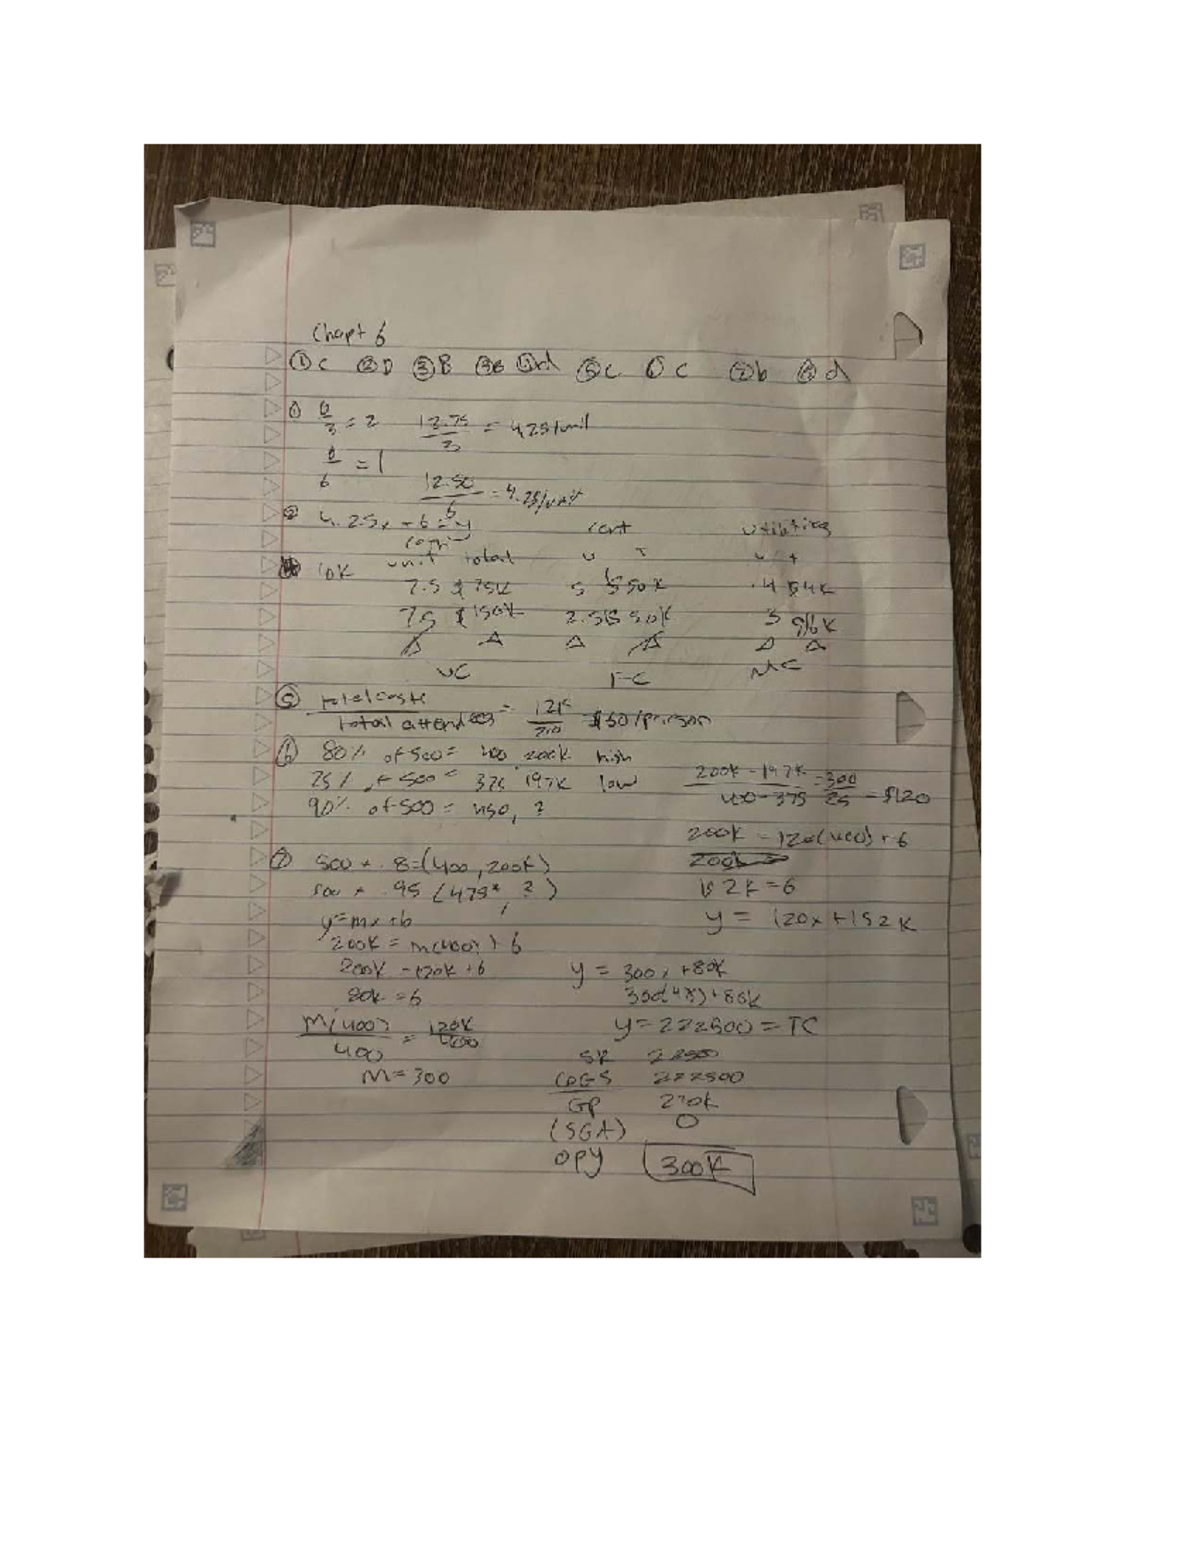 Chapt 6
① C ② D ③ B ③B ④d ⑤C ⑥ C ⑦b ⑧ d
① 6/3 = 2 12.75/3 = 4.25/unit
6/6 = 1
12.50/6 = 4.25/unit
② 4.25x + 6 = y rent utilities
unit total u T u t
10K 7.5 $75K 5 $50K .4 $4K
7.5 $150K 2.5 $50K 3 $6K
Δ Δ Δ Δ Δ Δ
VC FC MC
⑤ total costs / total attendees = 12K/200 = $60/person
⑥ 80% of 500 = 400 200K high
75% of 500 = 375 197K low 200K - 197K / 400 - 375 = 300/25 = $120
90% of 500 = 450, ?
200K = 120(400) + b
⑦ 500 * .8 = (400, 200K) 200K
500 * .95 (475, ?) 152K = b
y = mx + b y = 120x + 152K
200K = m(400) + b
200K - 120K + b y = 300x + 80K
80K = b 300(475) + 80K
m(400)/400 = 120K/400 y = 222500 = TC
SR
m = 300 COGS 222500
GP 270K
(SGA) 0
OPY 300K